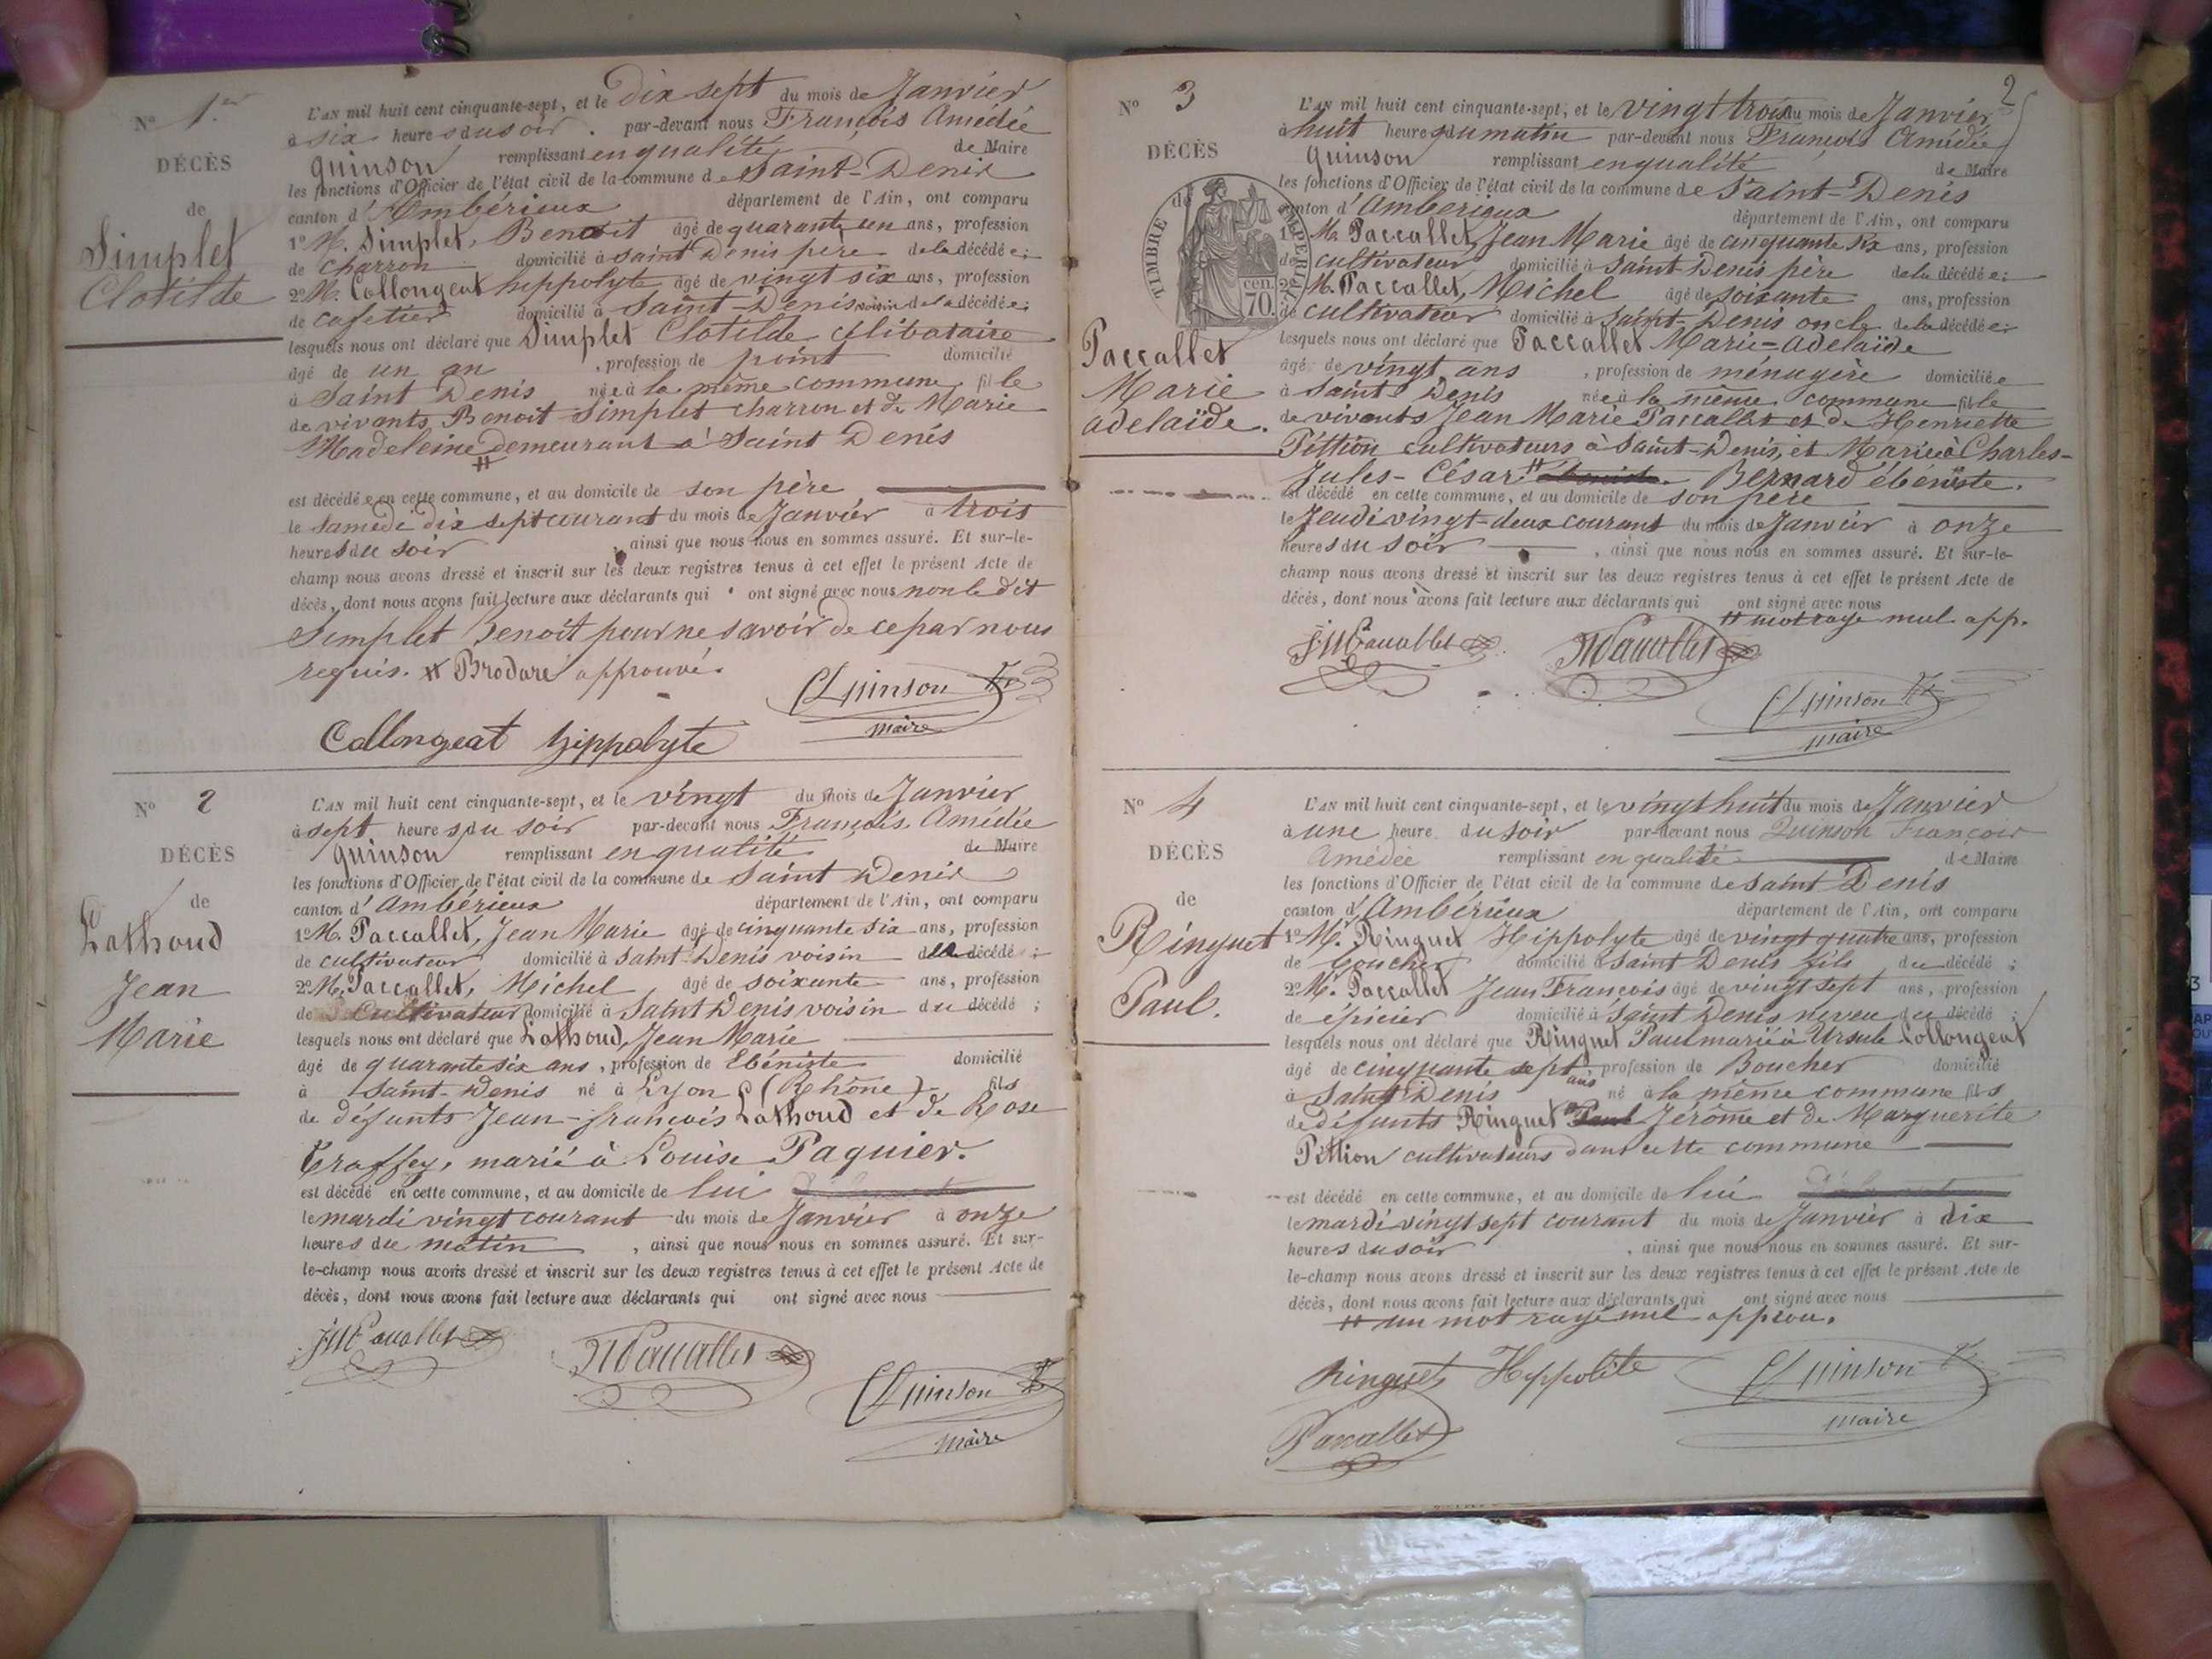 Nº 1.er
DÉCÈS
de
Simplet
Clotilde
L'AN mil huit cent cinquante-sept, et le Dix sept du mois de Janvier
à six heures du soir . par-devant nous François Amédée
quinson remplissant en qualité de Maire
les fonctions d'Officier de l'état civil de la commune de Saint-Denis
canton d'Ambérieux département de l'Ain, ont comparu
1º M. Simplet, Benoit âgé de quarante un ans, profession
de charron domicilié à saint Denis père de la décédée;
2º M. Collongeat hippolyte âgé de vingt six ans, profession
de cafetier domicilié à Saint-Denis voisin de la décédée;
lesquels nous ont déclaré que Simplet Clotilde célibataire
âgé de un an , profession de point domicilié
à Saint Denis née à la même commune fille
de vivants, Benoit Simplet charron et de Marie
Madeleine # demeurant à Saint Denis
est décédée en cette commune, et au domicile de son père
le samedi dix sept courant du mois de Janvier à trois
heures du soir , ainsi que nous nous en sommes assuré. Et sur-le-
champ nous avons dressé et inscrit sur les deux registres tenus à cet effet le présent Acte de
décès, dont nous avons fait lecture aux déclarants qui ont signé avec nous non le dit
Simplet Benoit pour ne savoir de ce par nous
requis. # Brodare approuvé.
Quinson
maire
Collongeat hippolyte
Nº 2
DÉCÈS
de
Lathoud
Jean
Marie
L'AN mil huit cent cinquante-sept, et le vingt du mois de Janvier
à sept heures du soir par-devant nous François Amédée
quinson remplissant en qualité de Maire
les fonctions d'Officier de l'état civil de la commune de Saint Denis
canton d'Ambérieux département de l'Ain, ont comparu
1º M. Paccallet, Jean Marie âgé de cinquante six ans, profession
de cultivateur domicilié à Saint-Denis voisin décédé ;
2º M. Paccallet, Michel âgé de soixante ans, profession
de Cultivateur domicilié à Saint Denis voisin du décédé ;
lesquels nous ont déclaré que Lathoud, Jean Marie
âgé de quarante six ans , profession de Ebéniste domicilié
à Saint-Denis né à Lyon (Rhône) fils
de défunts Jean-françois Lathoud et de Rose
marié à Louise Paquier.
est décédé en cette commune, et au domicile de lui
le mardi vingt courant du mois de Janvier à onze
heures du matin , ainsi que nous nous en sommes assuré. Et sur-
le-champ nous avons dressé et inscrit sur les deux registres tenus à cet effet le présent Acte de
décès, dont nous avons fait lecture aux déclarants qui ont signé avec nous
JM Paccallet
M Paccallet
Quinson
maire
2
Nº 3
DÉCÈS
de
TIMBRE IMPERIAL
70 cen.
Paccallet
Marie
adelaïde.
L'AN mil huit cent cinquante-sept, et le vingt trois du mois de Janvier
à huit heures du matin par-devant nous François Amédée
quinson remplissant en qualité de Maire
les fonctions d'Officier de l'état civil de la commune de Saint-Denis
canton d'Amberieux département de l'Ain, ont comparu
1º M. Paccallet, Jean Marie âgé de cinquante six ans, profession
de cultivateur domicilié à Saint-Denis père de la décédée;
2º M. Paccallet, Michel âgé de soixante ans, profession
de cultivateur domicilié à Saint-Denis oncle de la décédée;
lesquels nous ont déclaré que Paccallet Marie-adelaïde
âgé de vingt ans , profession de ménagère domiciliée
à Saint Denis née à la même commune fille
de vivants Jean Marie Paccallet et de Henriette
Pittion cultivateurs à Saint-Denis, et Mariée à Charles-
Jules-César # Bernard ébéniste.
est décédé en cette commune, et au domicile de son père
le Jeudi vingt-deux courant du mois de Janvier à onze
heures du soir , ainsi que nous nous en sommes assuré. Et sur-le-
champ nous avons dressé et inscrit sur les deux registres tenus à cet effet le présent Acte de
décès, dont nous avons fait lecture aux déclarants qui ont signé avec nous
# mot rayé nul app.
JM Paccallet
M Paccallet
Quinson
maire
Nº 4
DÉCÈS
de
Ringuet
Paul.
L'AN mil huit cent cinquante-sept, et le vingt huit du mois de Janvier
à une heure du soir par-devant nous Quinson François
Amédée remplissant en qualité de Maire
les fonctions d'Officier de l'état civil de la commune de Saint Denis
canton d'Ambérieux département de l'Ain, ont comparu
1º M. Ringuet Hippolyte âgé de vingt quatre ans, profession
de boucher domicilié à Saint Denis fils du décédé ;
2º M. Paccallet Jean François âgé de vingt sept ans, profession
de épicier domicilié à Saint Denis neveu du décédé ;
lesquels nous ont déclaré que Ringuet Paul marié à Ursule Collongeat
âgé de cinquante sept ans profession de Boucher domicilié
à Saint Denis né à la même commune fils
de défunts Ringuet # Paul Jérôme et de Marguerite
Pittion cultivateurs dans cette commune
est décédé en cette commune, et au domicile de lui
le mardi vingt sept courant du mois de Janvier à dix
heures du soir , ainsi que nous nous en sommes assuré. Et sur-
le-champ nous avons dressé et inscrit sur les deux registres tenus à cet effet le présent Acte de
décès, dont nous avons fait lecture aux déclarants qui ont signé avec nous
# un mot rayé nul approu.
Ringuet Hippolite
Quinson
maire
Paccallet